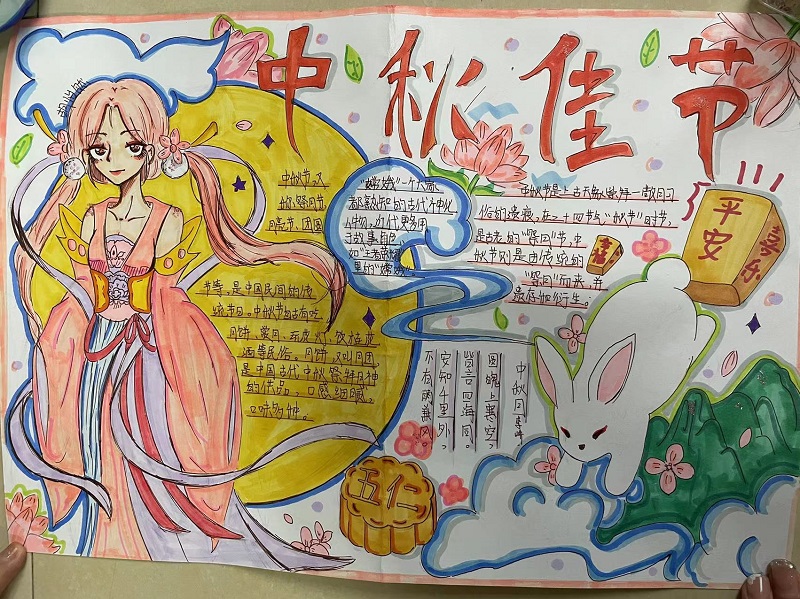 中秋佳节
中秋节,又
称祭月节、
月亮节、团圆
节等,是中国民间的传
统节日。中秋节自古有吃
月饼、赏月、玩花灯、饮桂花
酒等民俗。月饼,又叫月团
是中国古代中秋祭拜月神
的供品,口感细腻,
口味多种。
"嫦娥"一个大家
都熟知的古代神化
人物,
故事自
里的"嫦娥"
中秋节是上古天象崇拜一敬月习
俗的遗痕,在二十四节气"秋节"时节,
是古老的"祭月"节,中
秋节则是由传统的
"祭月"而来,并
最存如衍生。
中秋月
圆魄上寒空,
皆言四海同。
安知千里外,
不有雨兼风。
平安
喜乐
幸福
五仁